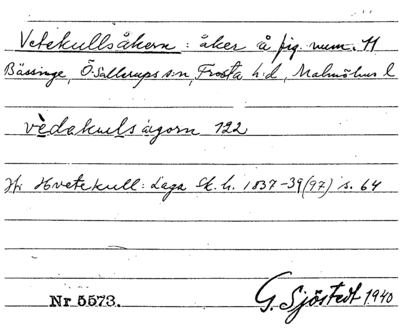 Vetekullsåkern : åker å fig. num. 11
Bässinge, Ö. Sallerups s:n, Frosta h:d, Malmöhus l
vèdakulsågorn 122
Hvetekull: Laga Sk. h. 1837-39 (97) s. 64
Nr 5573. G. Sjöstedt 1940